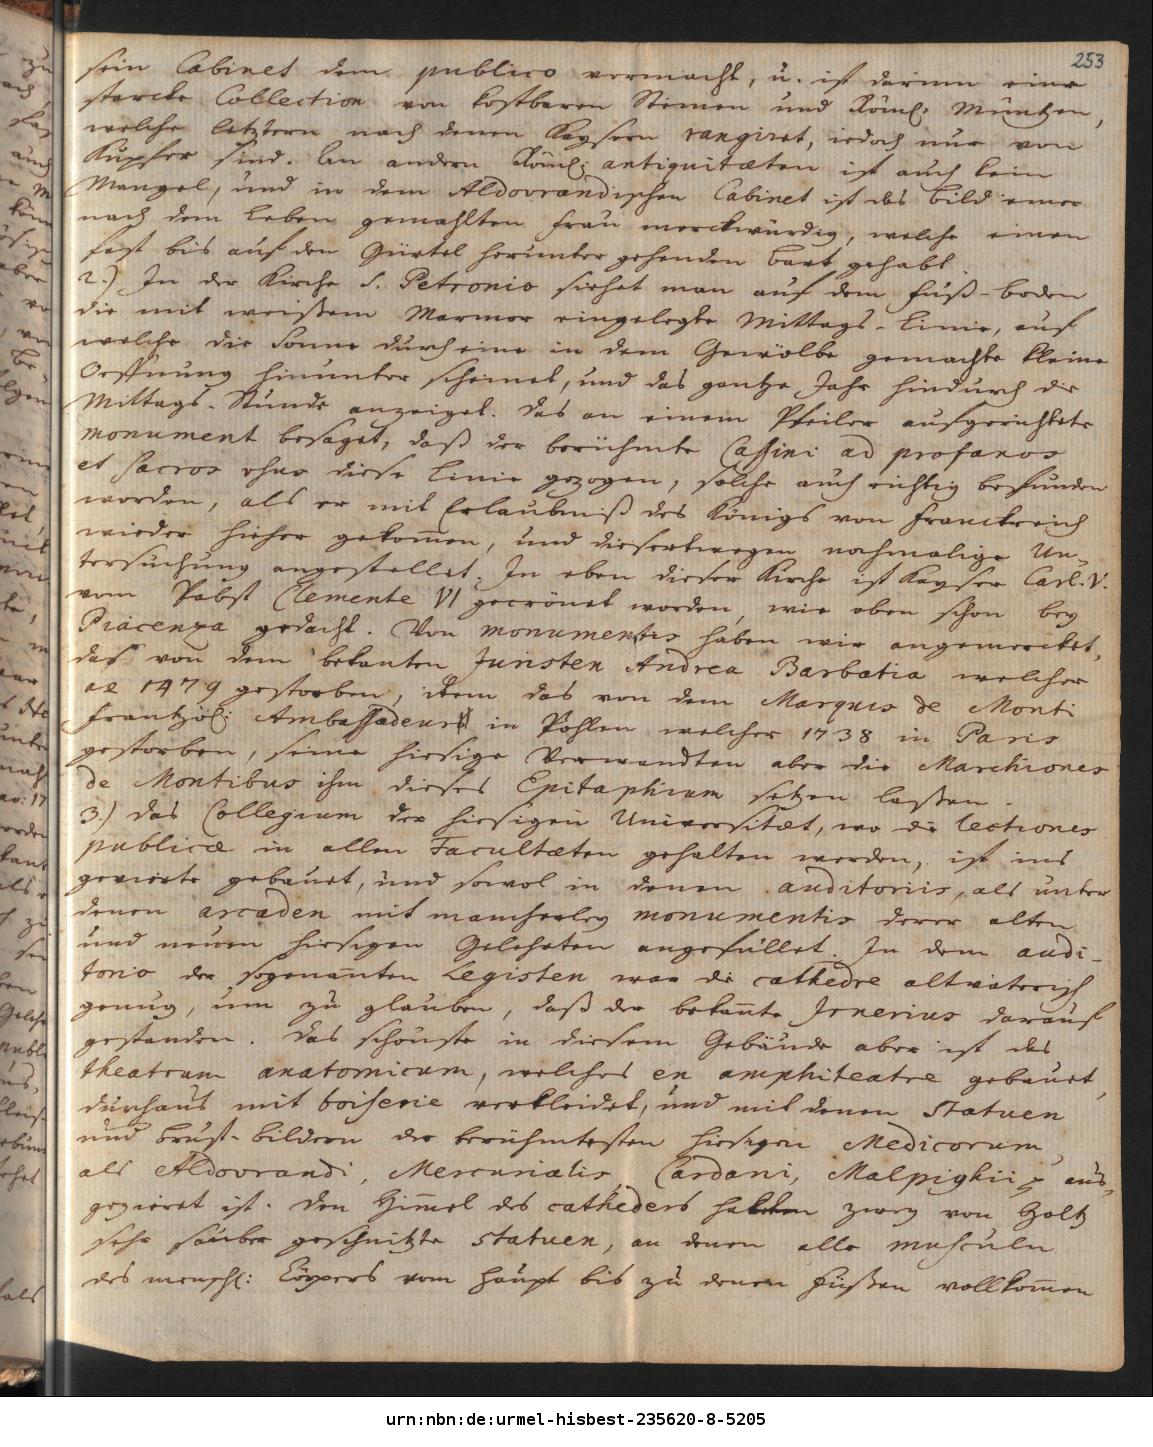 253
sein Cabinet dem publico vermacht, u. ist darinn eine
starcke Collection von kostbaren Steinen und Röml: Müntzen,
welche letztern nach denen Kaysern rangiret, iedoch nur von
Kupfer sind. An andern Röml: antiquitæten ist auch kein
Mangel, und in dem Aldovrandischen Cabinet ist das Bild einer
nach dem Leben gemahlten Frau merckwürdig, welche einen
fast bis auf den Gürtel herunter gehenden Bart gehabt.
2.) In der Kirche S. Petronio siehet man auf dem Fuß-boden
die mit weißem Marmor eingelegte Mittags-Linie, auf
welche die Sonne durch eine in dem Gewölbe gemachte kleine
Oeffnung hinunter scheinet, und das gantze Jahr hindurch die
Mittags-Stunde anzeiget. Das an einem Pfeiler aufgerichtete
monument besaget, daß der berühmte Cassini ad profanos
et sacros usus diese Linie gezogen, solche auch richtig befunden
worden, als er mit Erlaubniß des Königs von Franckreich
wieder hieher gekom̄en, und dieserwegen nochmalige Un-
tersuchung angestellet. In eben dieser Kirche ist Kayser Carl. V.
vom Pabst Clemente VI gecrönet worden, wie oben schon bey
Piacenza gedacht. Von monumentis haben wir angemercket,
das von dem bekanten Juristen Andrea Barbatia welcher
ae 1479 gestorben, item das von dem Marquis de Monti
Frantzöl: Ambassadeur in Pohlen welcher 1738 in Paris
gestorben, seine hiesige Verwandten aber die Marchiones
de Montibus ihm dieses Epitaphium setzen laßen.
3.) Das Collegium der hiesigen Universitæt, wo die lectiones
publicæ in allen Facultæten gehalten werden, ist ins
gevierte gebauet, und sowol in denen auditoriis, als unter
denen arcaden mit mancherley monumentis derer alten
und neuen hiesigen Gelehrten angefüllet. In dem audi-
torio der sogenan̄ten Legisten war die cathedre altväterisch
genug, um zu glauben, daß der bekan̄te Irnerius darauf
gestanden. Das schönste in diesem Gebäude aber ist das
theatrum anatomicum, welches en amphiteatre gebauet,
durchaus mit boiserie verkleidet, und mit denen Statuen
und Brust-bildern der berühmtesten hiesigen Medicorum,
als Aldovrandi, Mercurialis, Cardani, Malpighii aus-
gezieret ist. Den Him̄el des catheders halten zwey von Holtz
sehr sauber geschnitzte Statuen, an denen alle musculn
des menschl: Cörpers vom Haupt bis zu denen Füßen vollkom̄en
urn:nbn:de:urmel-hisbest-235620-8-5205